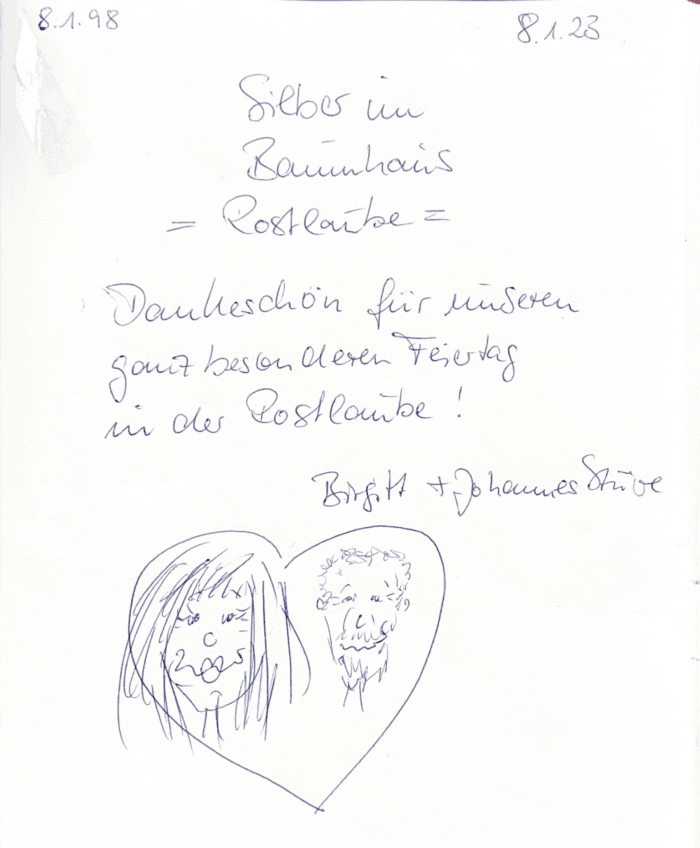 8.1.98 8.1.23
Silber im
Baumhaus
= Postlaube =
Dankeschön für unseren
ganz besonderen Feiertag
in der Postlaube !
Birgitt + Johannes Stüve